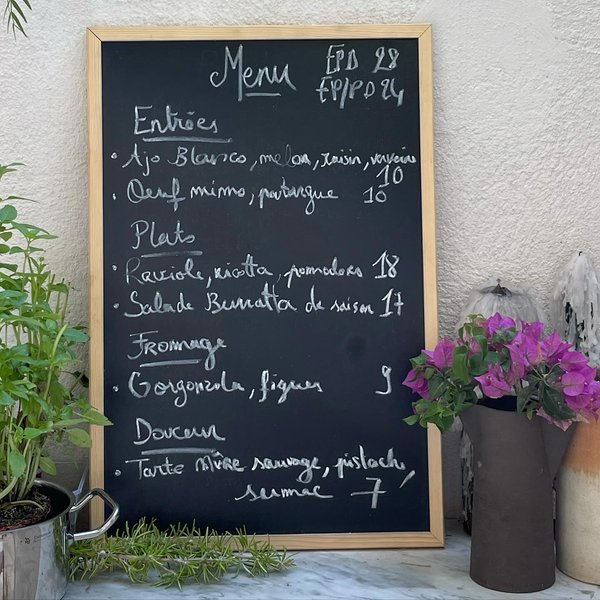 Menu
EPD 28
EP/PD 24
Entrées
• Ajo Blanco, melon, raisin, verveine
10
• Oeuf mimo, poutargue 10
Plats
• Raviole, ricotta, pomodoro 18
• Salade Burratta de saison 17
Fromage
• Gorgonzola, figues 9
Douceur
• Tarte Mûre sauvage, pistache,
sumac 7